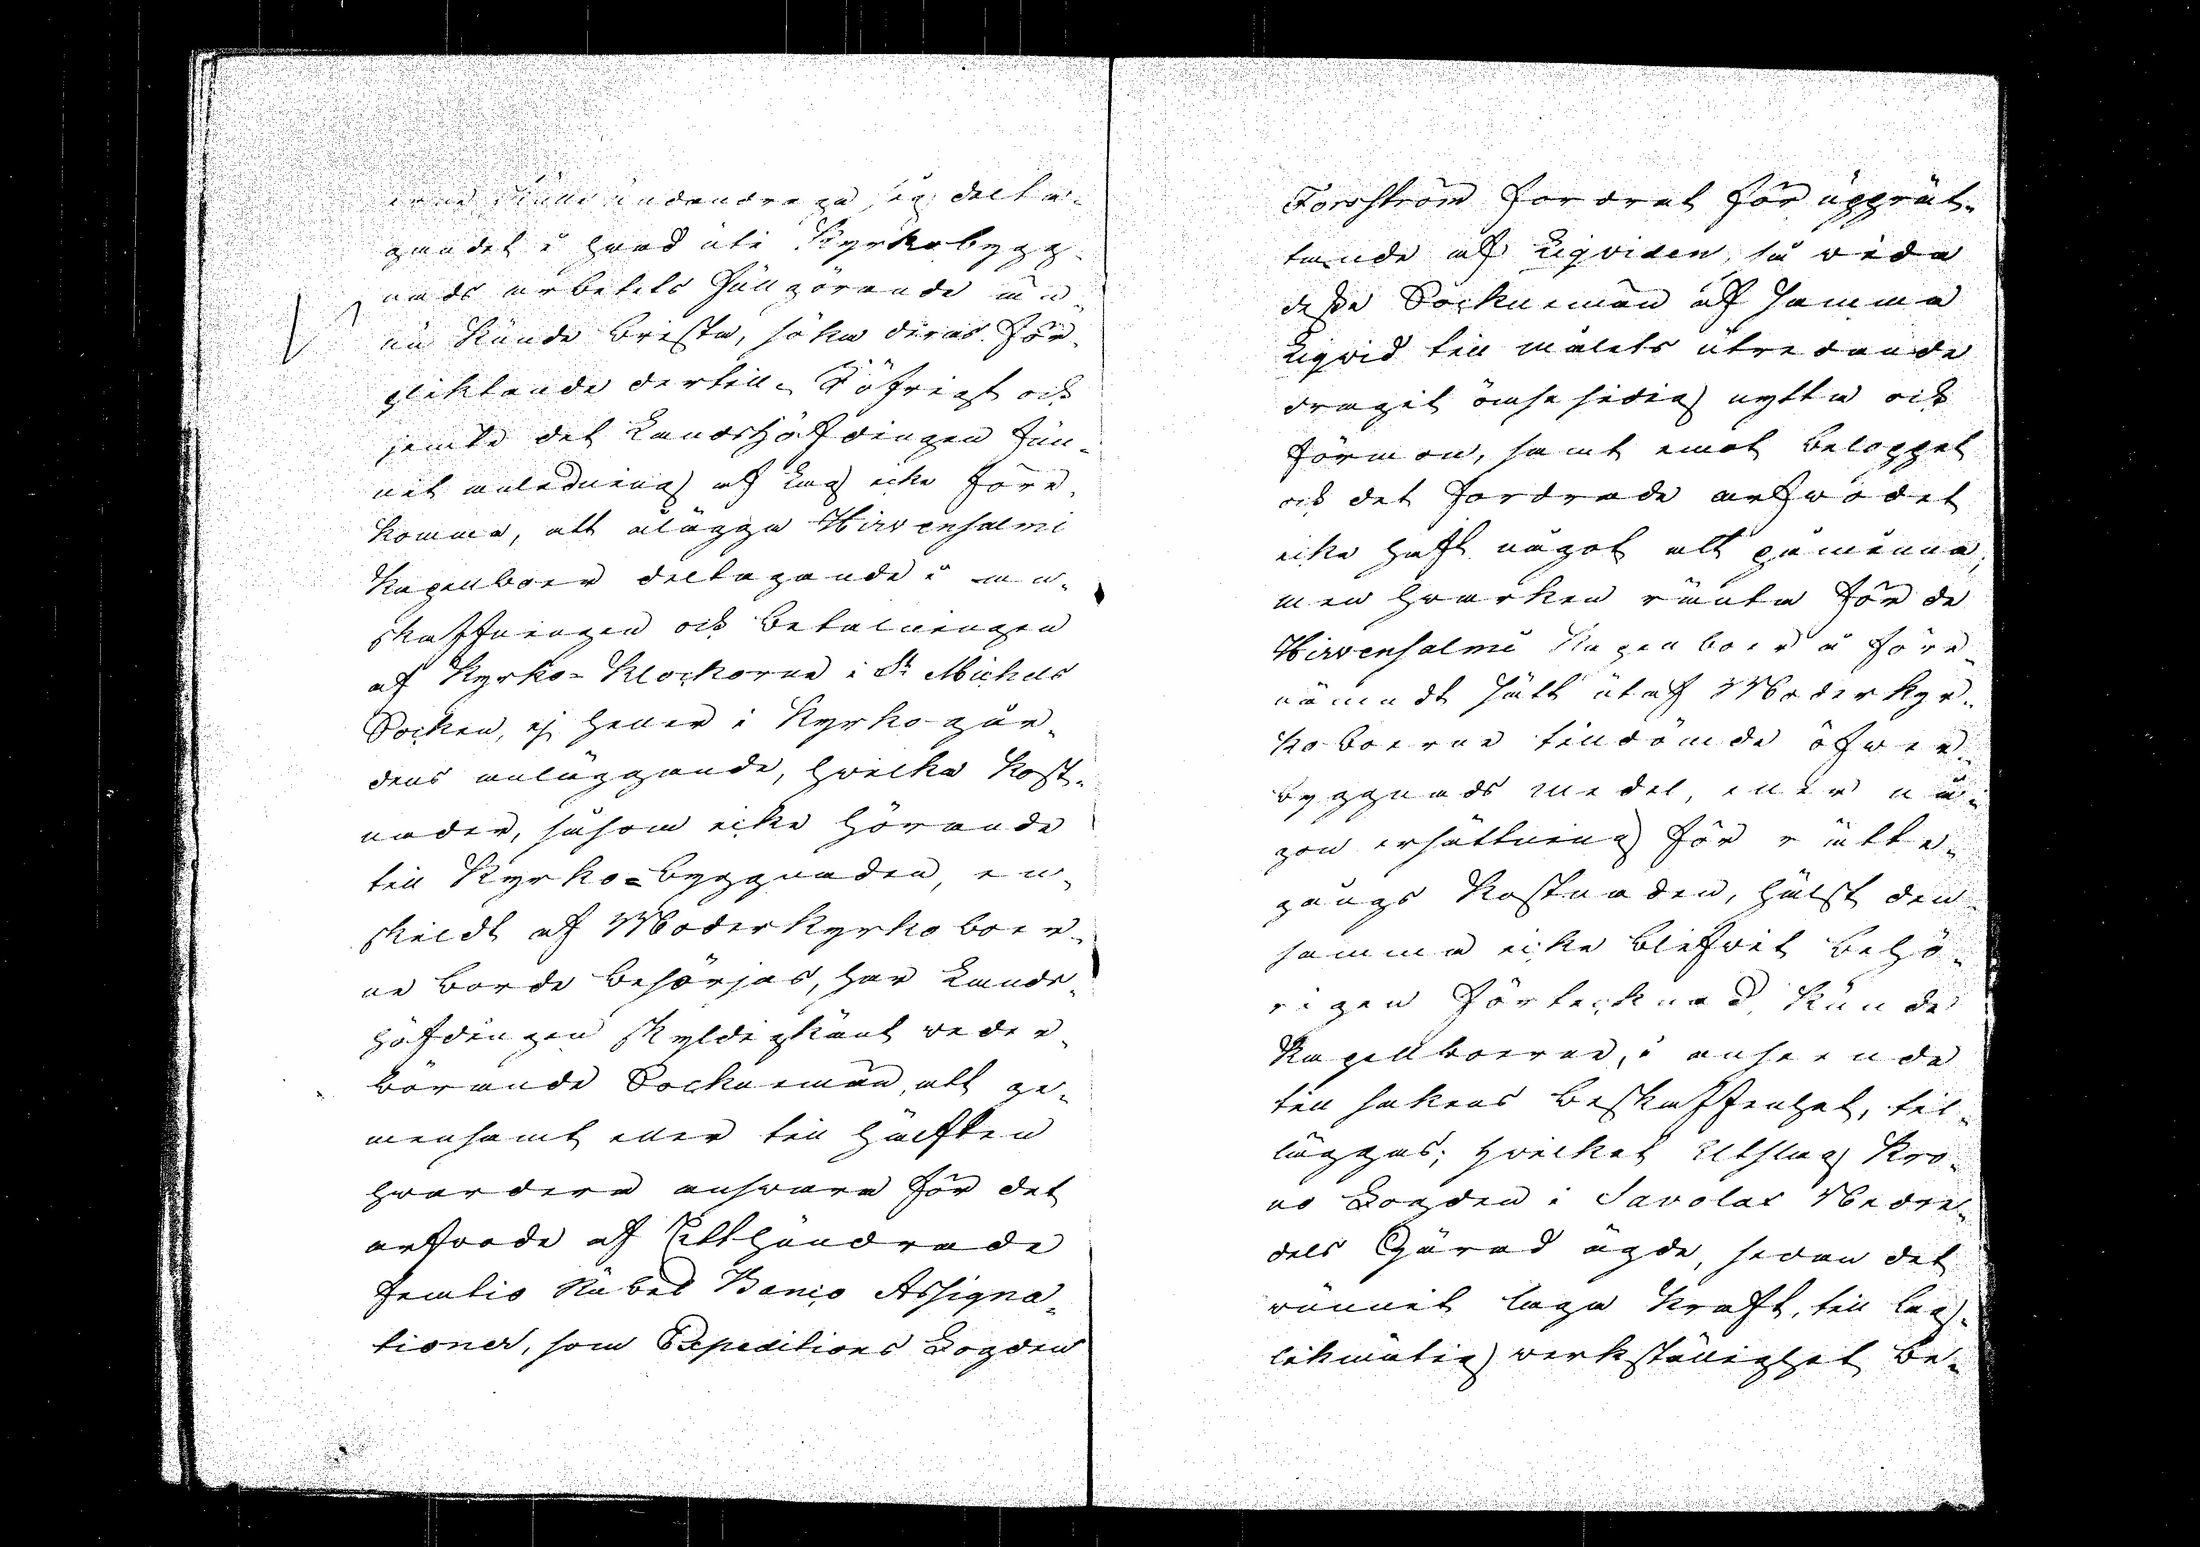 erne skulle undandraga sig delta-
gandet i hvad uti Kyrkobygg-
nads arbetets fullgörande än-
nu kunde brista, söka deras för-
pliktande dertill. I öfrigt och
jemte det Landshöfdingen fun-
nit anledning af Lag icke före-
komma, att ålägga Hirvensalmi
Kapellboer deltagande i an-
skaffningen och betalningen
af Kyrko-Klockorne i St Michels
Socken, ej heller i Kyrkogår-
dens anläggande, hvilka kost-
nader, såsom icke hörande
till Kyrko-byggnaden, en-
skildt af Moderkyrkoboer-
ne borde besörjas, har Lands-
höfdingen skyldigkänt veder-
börande Sockneman, att ge-
mensamt eller till hälften
hvardera ansvara för det
arfvode af Etthundrade
femtio Rubel Banco Assigna-
tioner, som Expeditions Fogden
Forsström fordrat för upprät-
tande af Liqviden, så vida
desse Socknemän af samma
Liqvid till målets utredande
dragit ömsesidig nytta och
förmon, samt emot beloppet
och det fordrade arfvodet
icke haft något att påminna;
men hvarken ränta för de
Hirvensalmi Kapellboer å före-
nämndt sätt utaf Moderkyr-
koboerne tilldömde öfver-
byggnads medel, eller nå-
gon ersättning för rätte-
gångs kostnaden, hälst den-
samma icke blifvit behö-
rigen förtecknad, kunde
Kapellboerne, i anseende
till sakens beskaffenhet, til-
läggas; hvilket Utslag Kro-
no Fogden i Savolax Medre-
dels Härad ägde, sedan det
vunnit laga kraft, till lag-
likmätig verkställighet be-